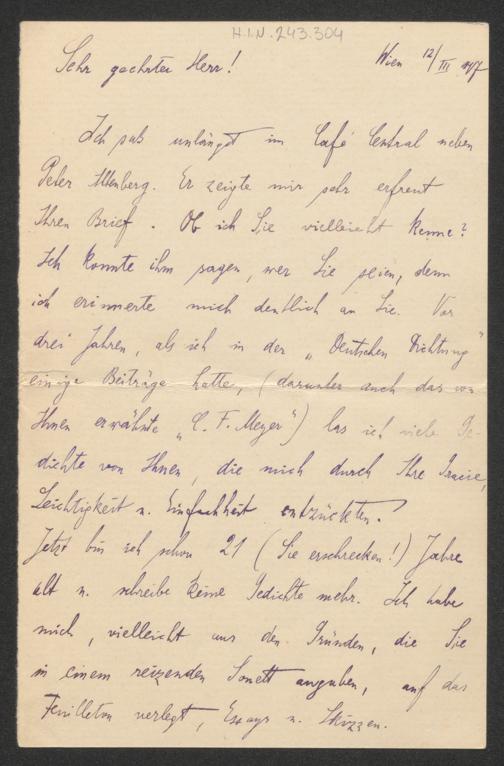 H.I.N. 243.304
Sehr geehrter Herr! Wien 12/III 1907
Ich sass unlängst im Café Central neben
Peter Altenberg. Er zeigte mir sehr erfreut
Ihren Brief. Ob ich Sie vielleicht kenne?
Ich konnte ihm sagen, wer Sie seien, denn
ich erinnerte mich deutlich an Sie. Vor
drei Jahren, als ich in der „Deutschen Dichtung"
einige Beiträge hatte, (darunter auch das von
Ihnen erwähnte „C. F. Meyer") las ich viele Ge-
dichte von Ihnen, die mich durch Ihre Grazie,
Leichtigkeit u. Einfachheit entzückten.
Jetzt bin ich schon 21 (Sie erschrecken!) Jahre
alt u. schreibe keine Gedichte mehr. Ich habe
mich, vielleicht aus den Gründen, die Sie
in einem reizenden Sonett angaben, auf das
Feuilleton verlegt, Essays u. Skizzen.